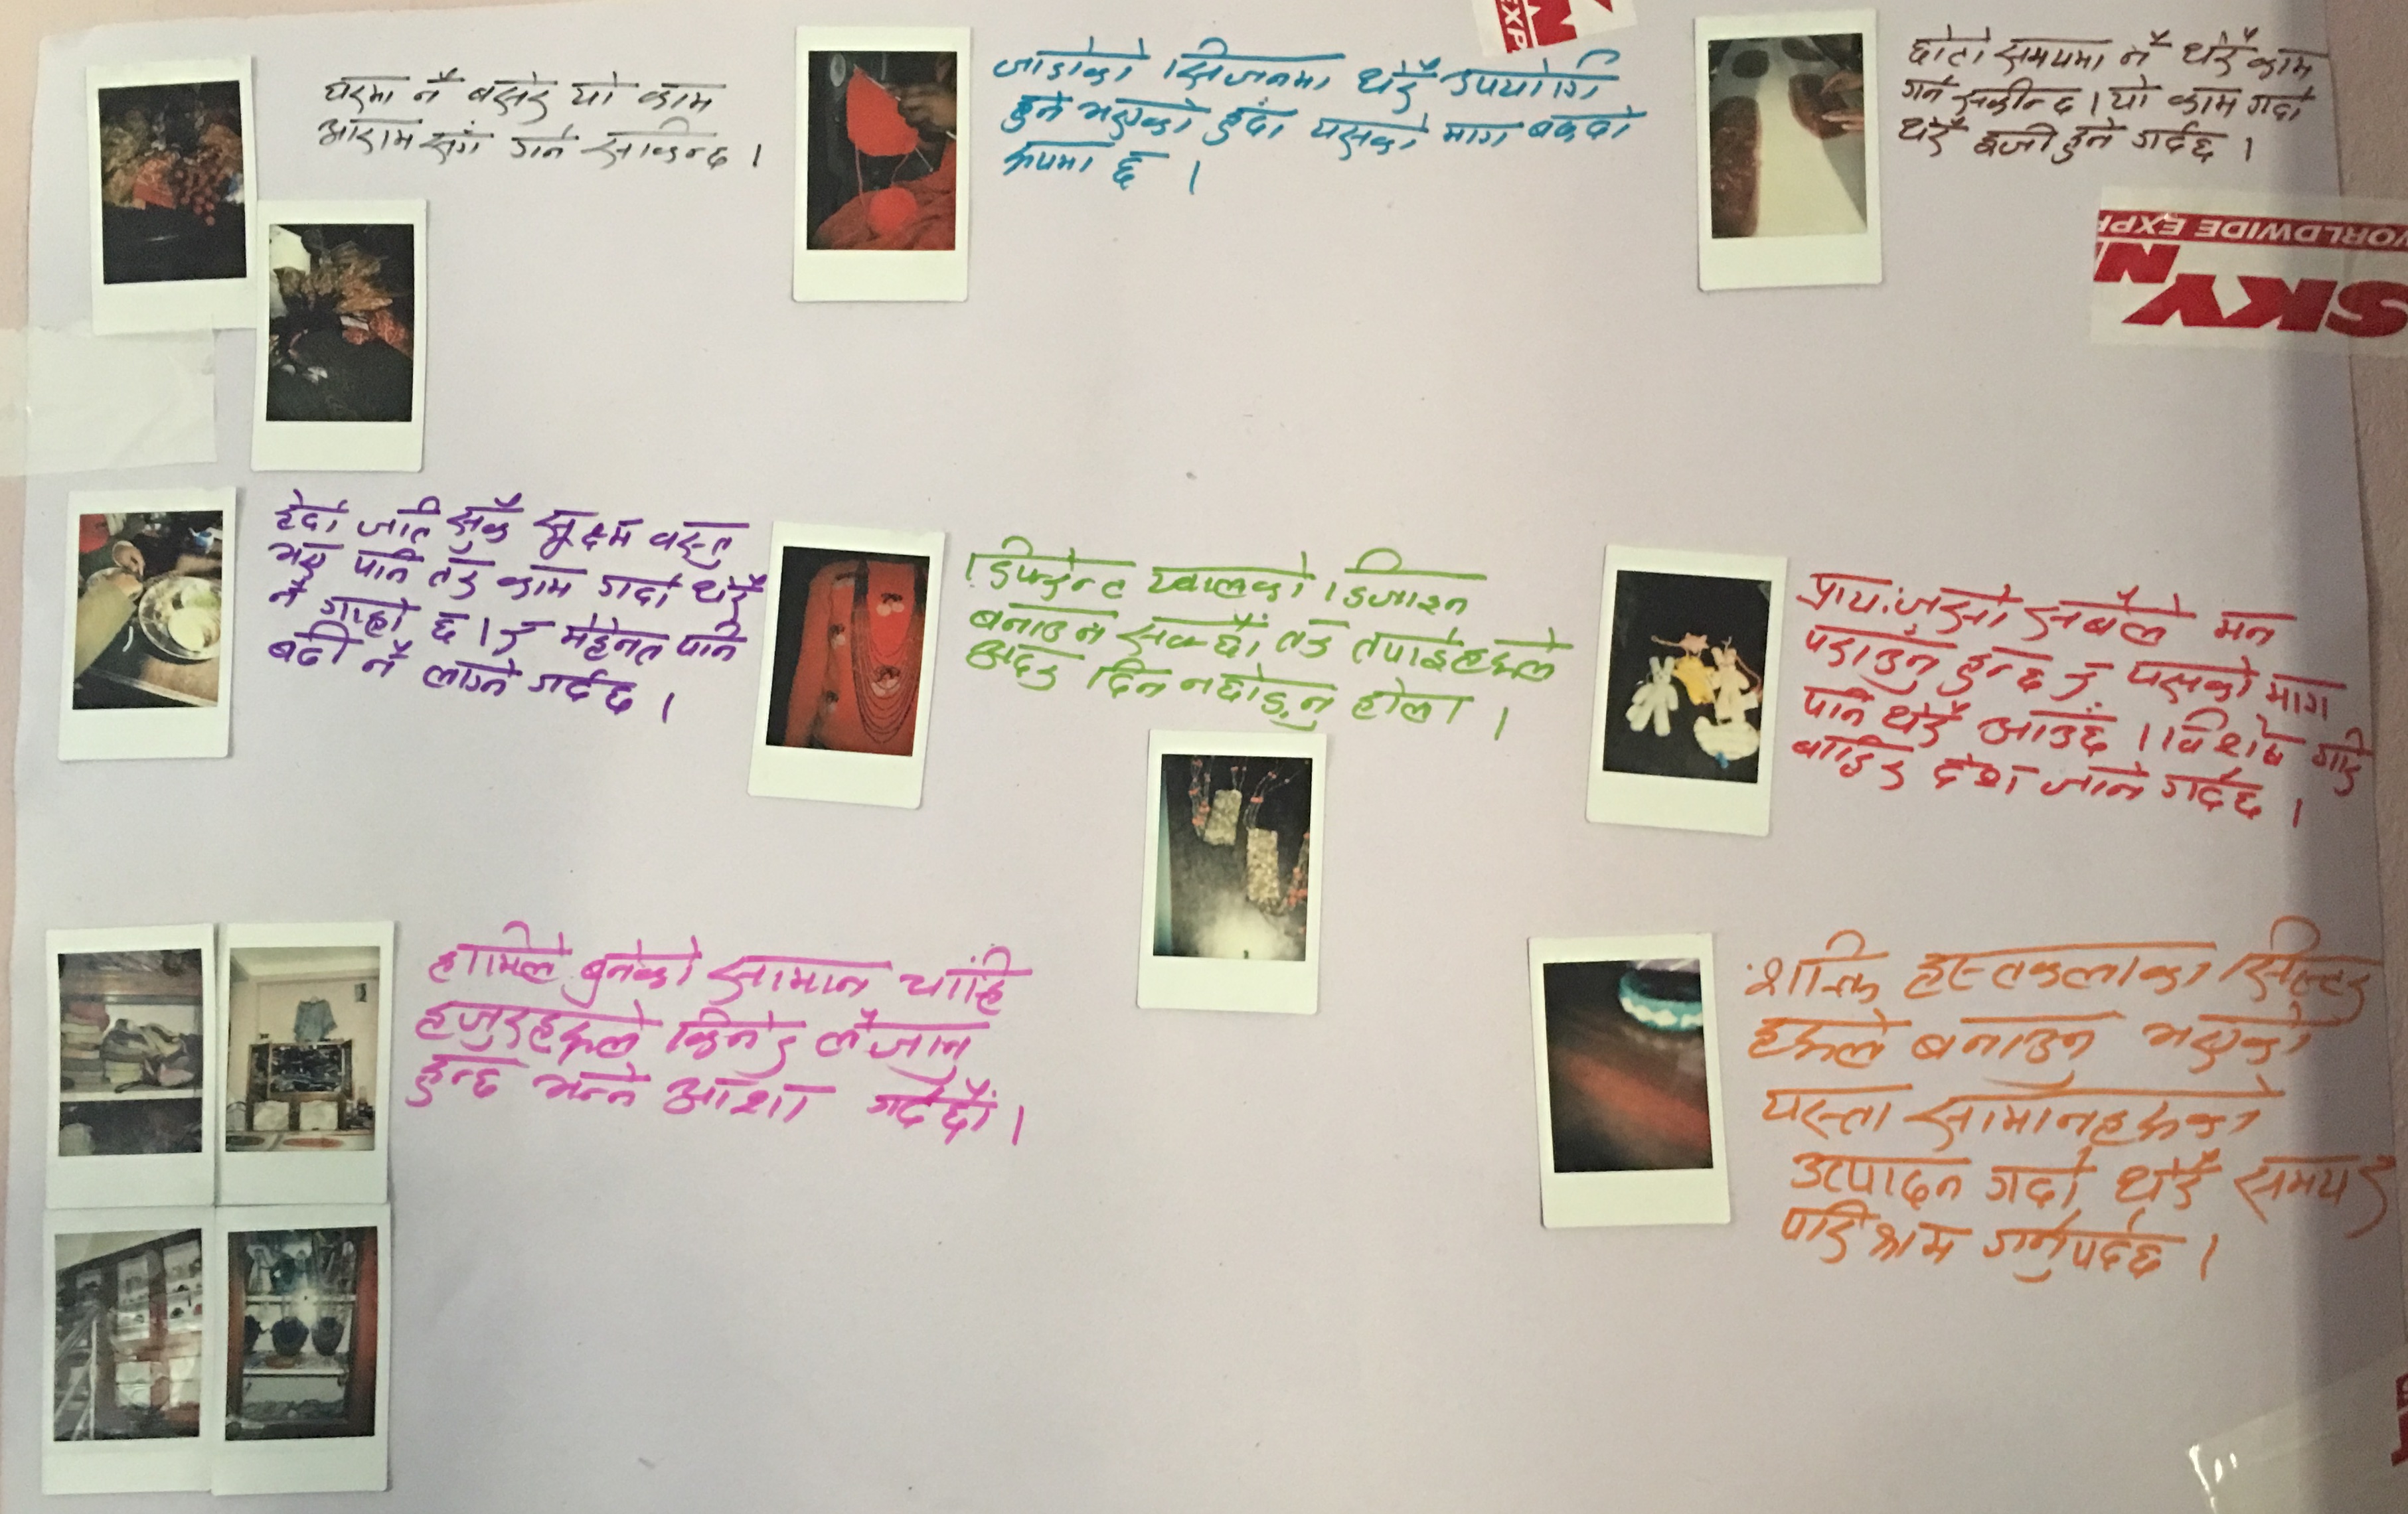 घरमा नै बसेर यो काम
आराम संग गर्न सकिन्छ ।
जाडोको सिजनमा धेरै उपयोगि
हुने भएको हुंदा यसको माग बढ्दो
रूपमा छ ।
छोटो समयमा नै धेरै काम
गर्न सकीन्छ । यो काम गर्दा
धेरै इजी हुने गर्दछ ।
EXP
WORLDWIDE EXP
SKYN
हेर्दा जति सुकै सूक्ष्म वस्तु
भए पनि तर काम गर्दा धेरै
नै गाह्रो छ । र मेहेनत पनि
बढी नै लाग्ने गर्दछ ।
डिफरेन्ट खालको डिजाइन
बनाउन सक्छौं तर तपाईहरूले
अडर दिन नछोड्नु होला ।
प्रायःजसो सबैले मन
पराउनु हुन्छ र यसको माग
पनि धेरै आउंछ । विशेष गरि
बाहिर देश जाने गर्दछ ।
हामिले बुनेको सामान चांहि
हजुरहरूले किनेर लैजानु
हुन्छ भन्ने आशा गर्दछौं ।
शक्ति हस्तकलाका सिस्टर
हरूले बनाउनु भएको
यस्ता सामानहरूको
उत्पादन गर्दा धेरै समय र
परिश्रम गर्नुपर्दछ ।